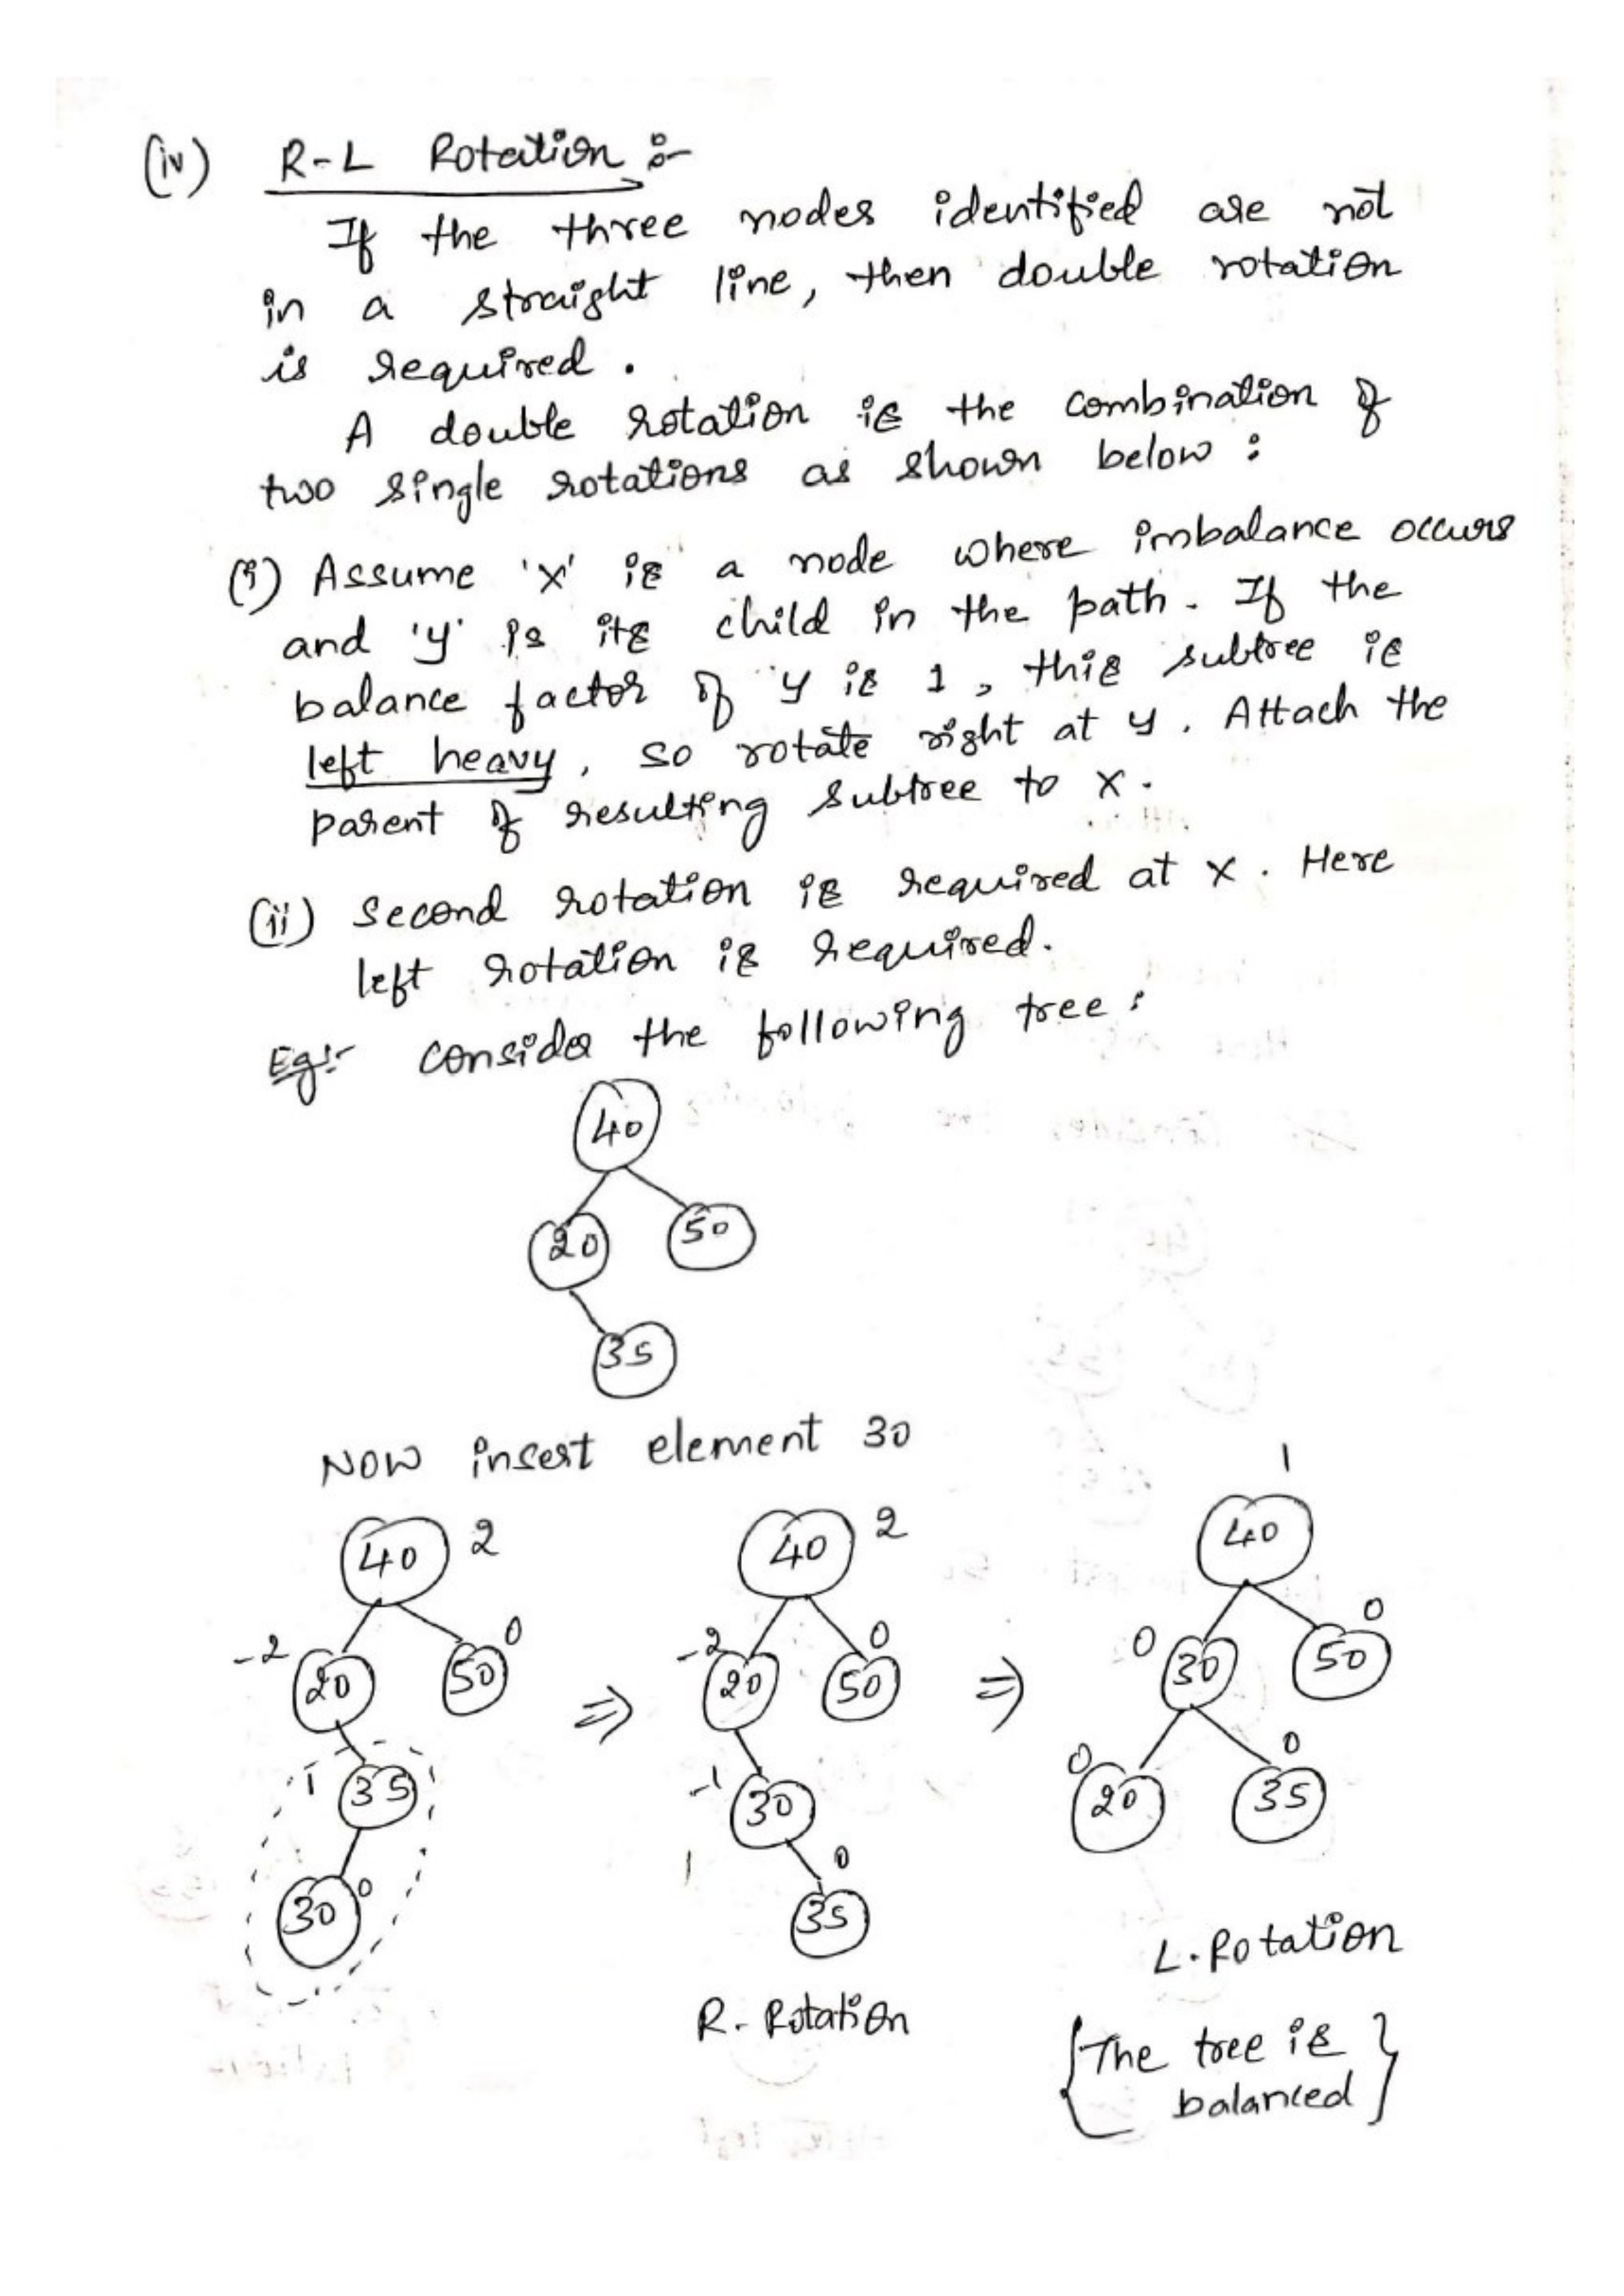 (iv) R-L Rotation :-
If the three nodes identified are not
in a straight line, then double rotation
is required.
A double rotation is the combination of
two single rotations as shown below :
(i) Assume 'x' is a node where imbalance occurs
and 'y' is its child in the path. If the
balance factor of y is 1, this subtree is
left heavy, so rotate right at y. Attach the
parent of resulting subtree to x.
(ii) Second rotation is required at x. Here
left rotation is required.
Eg:- consider the following tree :
40
20 50
35
Now insert element 30
40 2
-2 20 50 0
1 35
30 0
⇒
40 2
-2 20 50 0
-1 30
35 0
R. Rotation
⇒
1
40
0 30 50 0
0 20 35 0
L. Rotation
{The tree is
balanced}